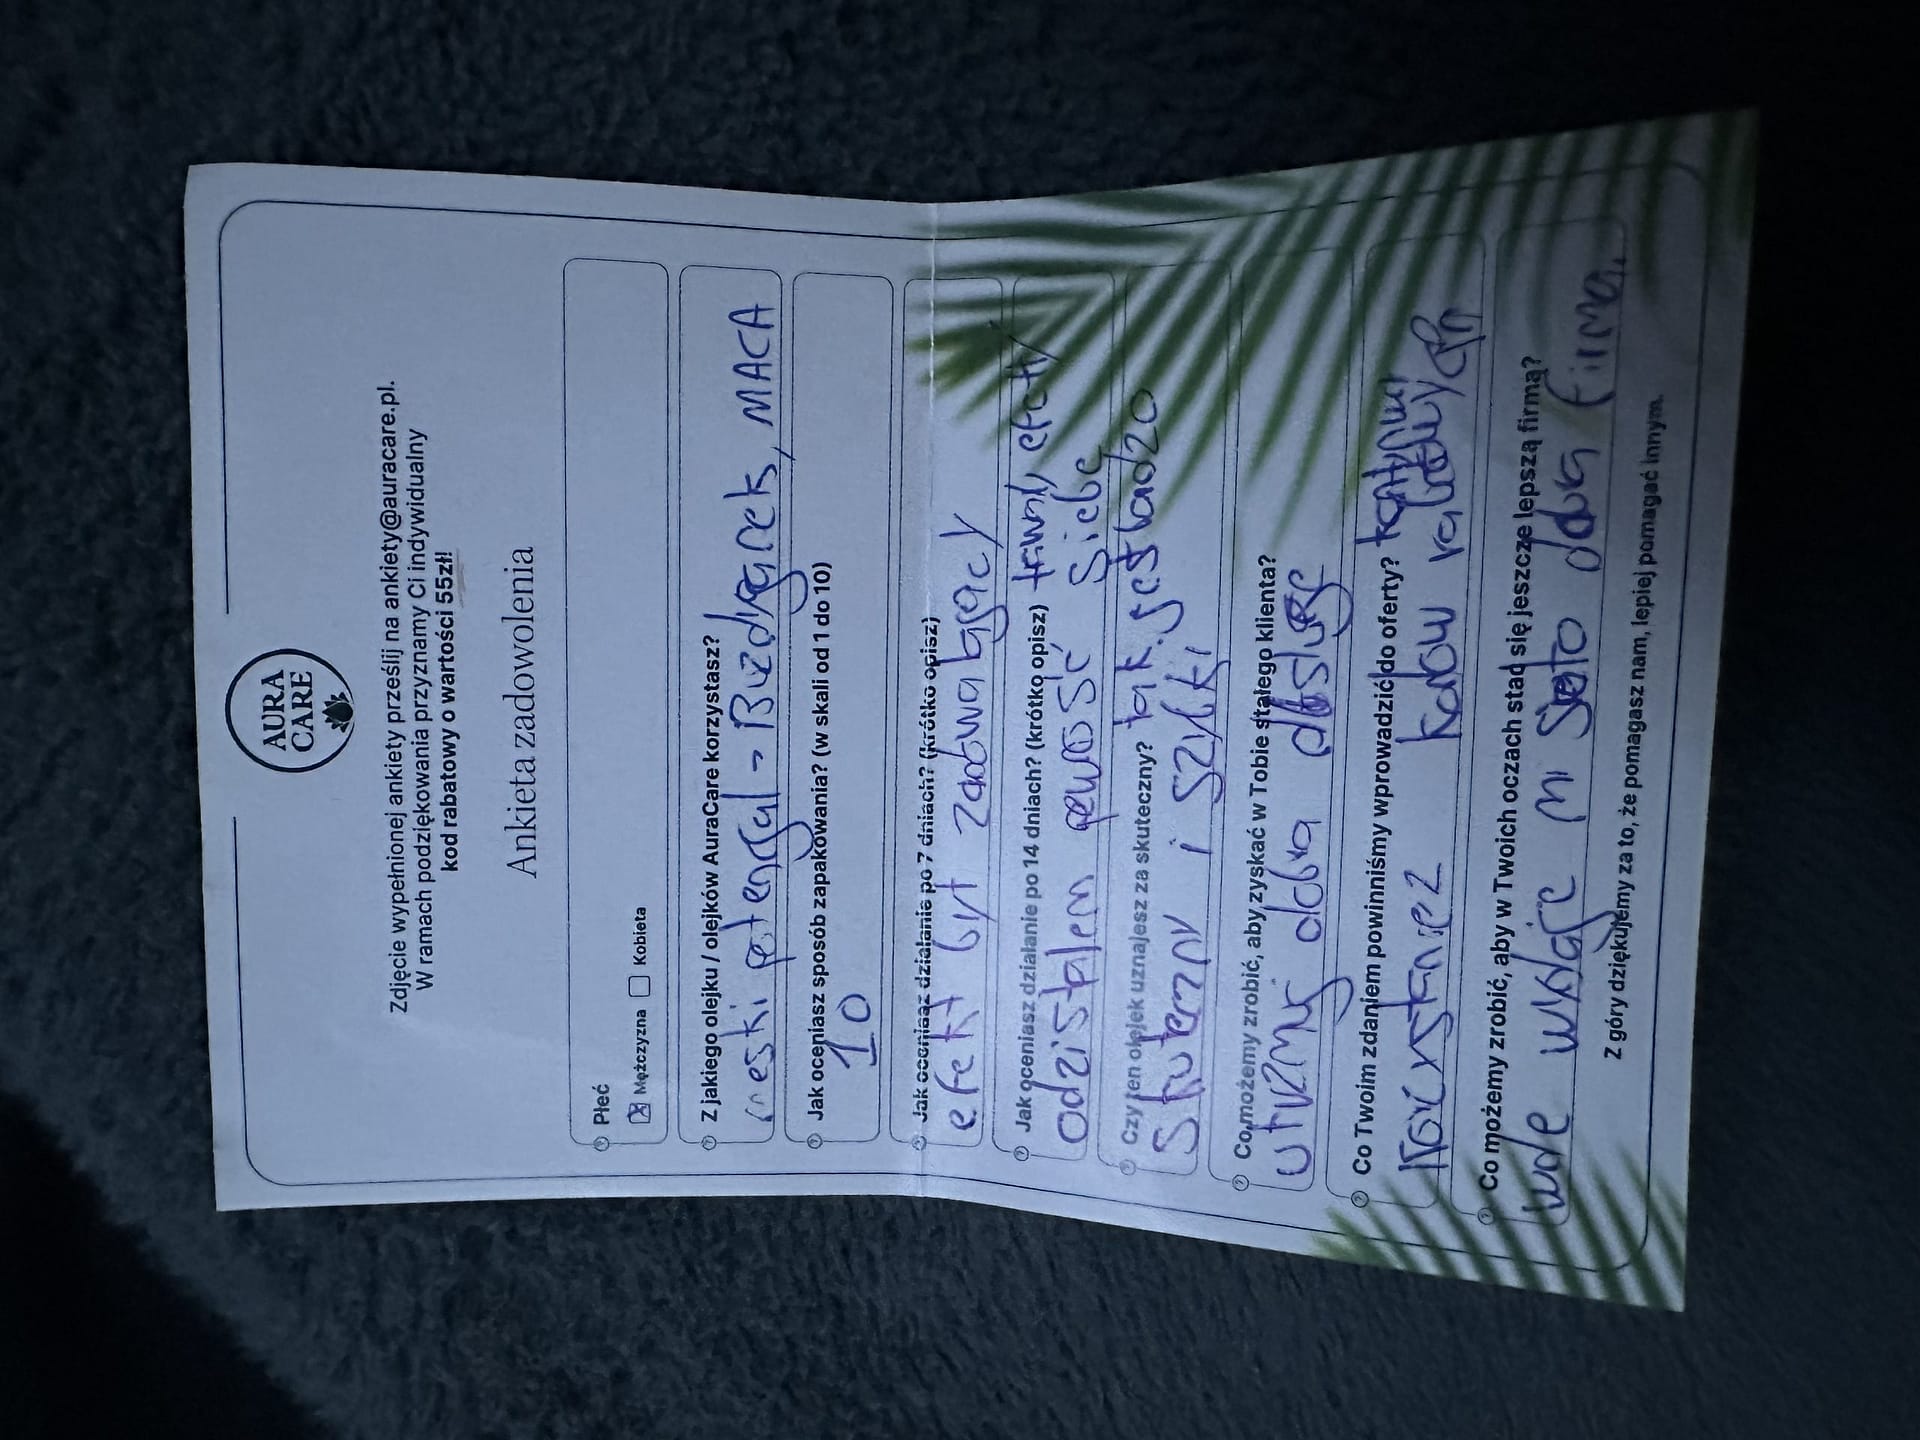 AURA
CARE
Zdjęcie wypełnionej ankiety prześlij na ankiety@auracare.pl.
W ramach podziękowania przyznamy Ci indywidualny
kod rabatowy o wartości 55zł!
Ankieta zadowolenia
Płeć
Mężczyzna Kobieta
Z jakiego olejku / olejków AuraCare korzystasz?
meski potencjal - Buzdyganek, MACA
Jak oceniasz sposób zapakowania? (w skali od 1 do 10)
10
Jak oceniasz działanie po 7 dniach? (krótko opisz)
efekt był
Jak oceniasz działanie po 14 dniach? (krótko opisz)
odzistalem pewosść Siebe
Czy ten olejek uznajesz za skuteczny? tak. jest bardzo
i szybki
Co możemy zrobić, aby zyskać w Tobie stałego klienta?
dobra
Co Twoim zdaniem powinniśmy wprowadzić do oferty?
kodow
Co możemy zrobić, aby w Twoich oczach stać się jeszcze lepszą firmą?
mi firma.
Z góry dziękujemy za to, że pomagasz nam, lepiej pomagać innym.